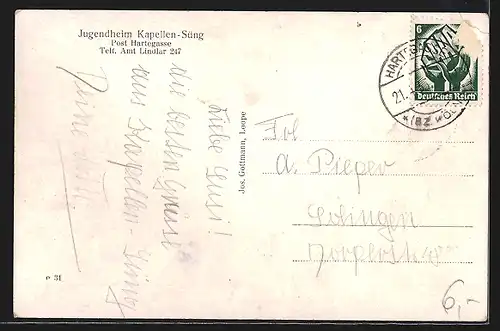 Jugendheim Kapellen-Süng
Post Hartegasse
Telf. Amt Lindlar 247
Liebe Susi!
die besten Grüsse
aus Kapellen-Süng
Deine
Jos. Gottmann, Loope
e 31
6
Deutsches Reich
HARTEG
21.
(BZ KÖLN)
Frl
A. Pieper
Solingen
6,-